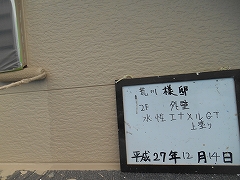 荒川様邸
2F 外壁
水性エナメルGT
上塗り
平成27年12月14日